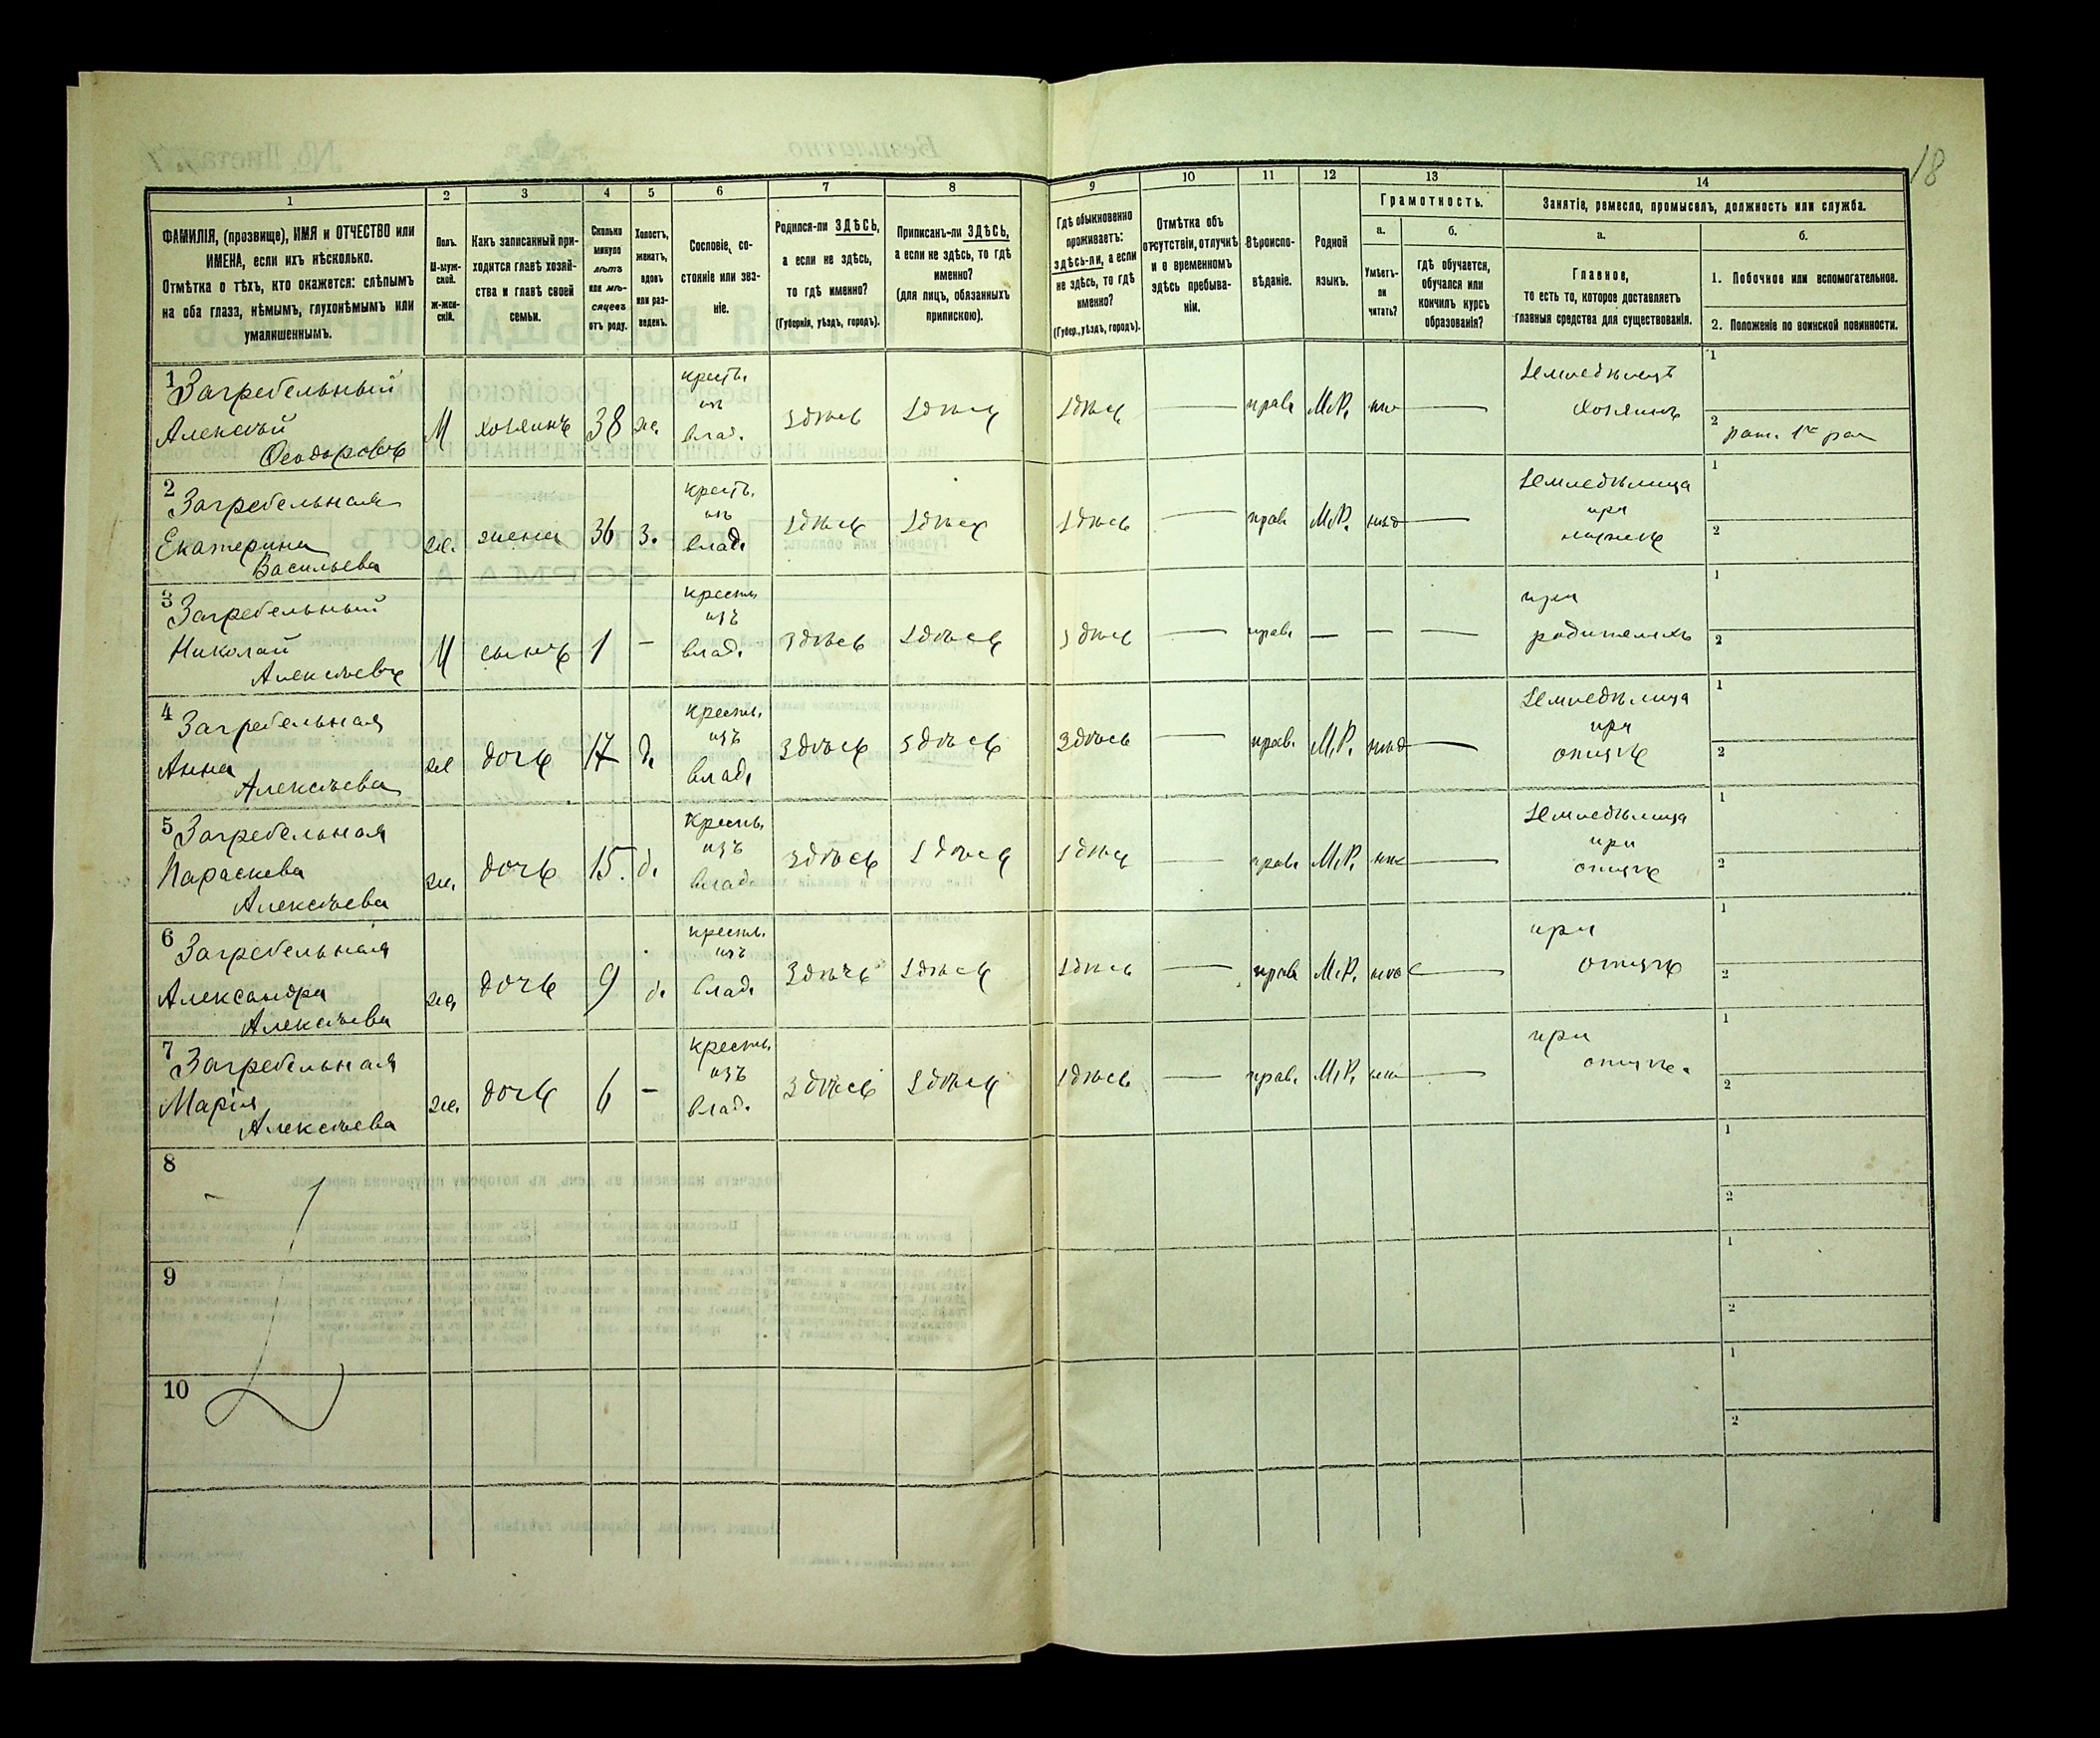 18
1 2 3 4 5 6 7 8 9 10 11 12 13 14
ФАМИЛІЯ, (прозвище), ИМЯ и ОТЧЕСТВО или
ИМЕНА, если ихъ нѣсколько.
Отмѣтка о тѣхъ, кто окажется: слѣпымъ
на оба глаза, нѣмымъ, глухонѣмымъ или
умалишеннымъ.
Полъ.
М-муж-
ской.
ж-жен-
скій.
Какъ записанный при-
ходится главѣ хозяй-
ства и главѣ своей
семьи.
Сколько
минуло
лѣтъ
или мѣ-
сяцевъ
отъ роду.
Холостъ,
женатъ,
вдовъ
или раз-
веденъ.
Сословіе, со-
стояніе или зва-
ніе.
Родился-ли ЗДѢСЬ,
а если не здѣсь,
то гдѣ именно?
(Губернія, уѣздъ, городъ).
Приписанъ-ли ЗДѢСЬ,
а если не здѣсь, то гдѣ
именно?
(для лицъ, обязанныхъ
припискою).
Гдѣ обыкновенно
проживаетъ:
здѣсь-ли, а если
не здѣсь, то гдѣ
именно?
(Губер., уѣздъ, городъ).
Отмѣтка объ
отсутствіи, отлучкѣ
и о временномъ
здѣсь пребыва-
ніи.
Вѣроиспо-
вѣданіе.
Родной
языкъ.
Грамотность.
а.
Умѣетъ-
ли
читать?
б.
гдѣ обучается,
обучался или
кончилъ курсъ
образованія?
Занятіе, ремесло, промыселъ, должность или служба.
а.
Главное,
то есть то, которое доставляетъ
главныя средства для существованія.
б.
1. Побочное или вспомогательное.
2. Положеніе по воинской повинности.
1 Загребельный
Алексѣй
Ѳеодоровъ
М хозяинъ 38 ж.
кресть.
изъ
влад.
здѣсь здѣсь здѣсь — прав. М.Р. —
Земледѣлецъ
хозяинъ
1
2
2 Загребельная
Екатерина
Васильева
ж. жена 36 з.
крестъ.
изъ
влад.
здѣсь здѣсь здѣсь — прав. М.Р. —
Земледѣлица
при
мужѣ
1
2
3 Загребельный
Николай
Алексѣевъ
М сынъ 1 —
крестъ.
изъ
влад.
здѣсь здѣсь здѣсь — прав. — — —
при
родителяхъ
1
2
4 Загребельная
Анна
Алексѣева
ж дочь 17 д.
крестъ.
изъ
влад.
здѣсь здѣсь здѣсь — прав. М.Р. —
Земледѣлица
при
отцѣ
1
2
5 Загребельная
Параскева
Алексѣева
ж. дочь 15. д.
крестъ.
изъ
влад.
здѣсь здѣсь здѣсь — прав. М.Р. —
Земледѣлица
при
отцѣ
1
2
6 Загребельная
Александра
Алексѣева
ж. дочь 9 д.
крестъ.
изъ
влад.
здѣсь здѣсь здѣсь — прав М.Р. —
при
отцѣ
1
2
7 Загребельная
Марія
Алексѣева
ж. дочь 6 —
крестъ.
изъ
влад.
здѣсь здѣсь здѣсь — прав. М.Р. —
при
отцѣ.
1
2
8
1
2
9
1
2
10
1
2